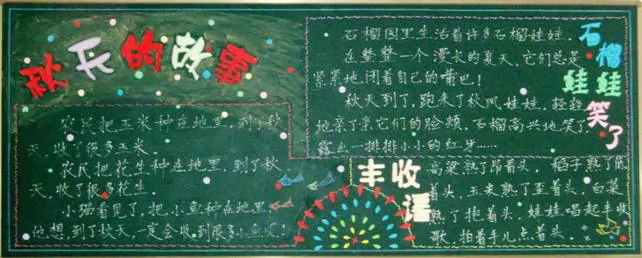 秋天的故事
农民把玉米种在地里,到了秋
天,收了很多玉米.
农民把花生种在地里,到了秋
天,收了很多花生.
小猫看见了,把小鱼种在地里.
他想,到了秋天,一定会收到很多小鱼呢!
石榴娃娃笑了
石榴园里生活着许多石榴娃娃.
在整整一个漫长的夏天,它们总是
紧紧地闭着自己的嘴巴!
秋天到了,跑来了秋风娃娃,轻轻
地亲了亲它们的脸颊,石榴高兴地笑了,
露出一排排小小的红牙……
丰收语
高粱熟了昂着头,稻子熟了低
着头,玉米熟了歪着头,白菜
熟了抱着头,娃娃唱起丰收
歌,拍着手儿点着头.